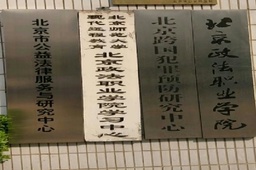 北京市公益法律服务与研究中心
北京师范大学
现代远程教育
北京政法职业学院学习中心
北京跨国犯罪预防研究中心
北京政法职业学院